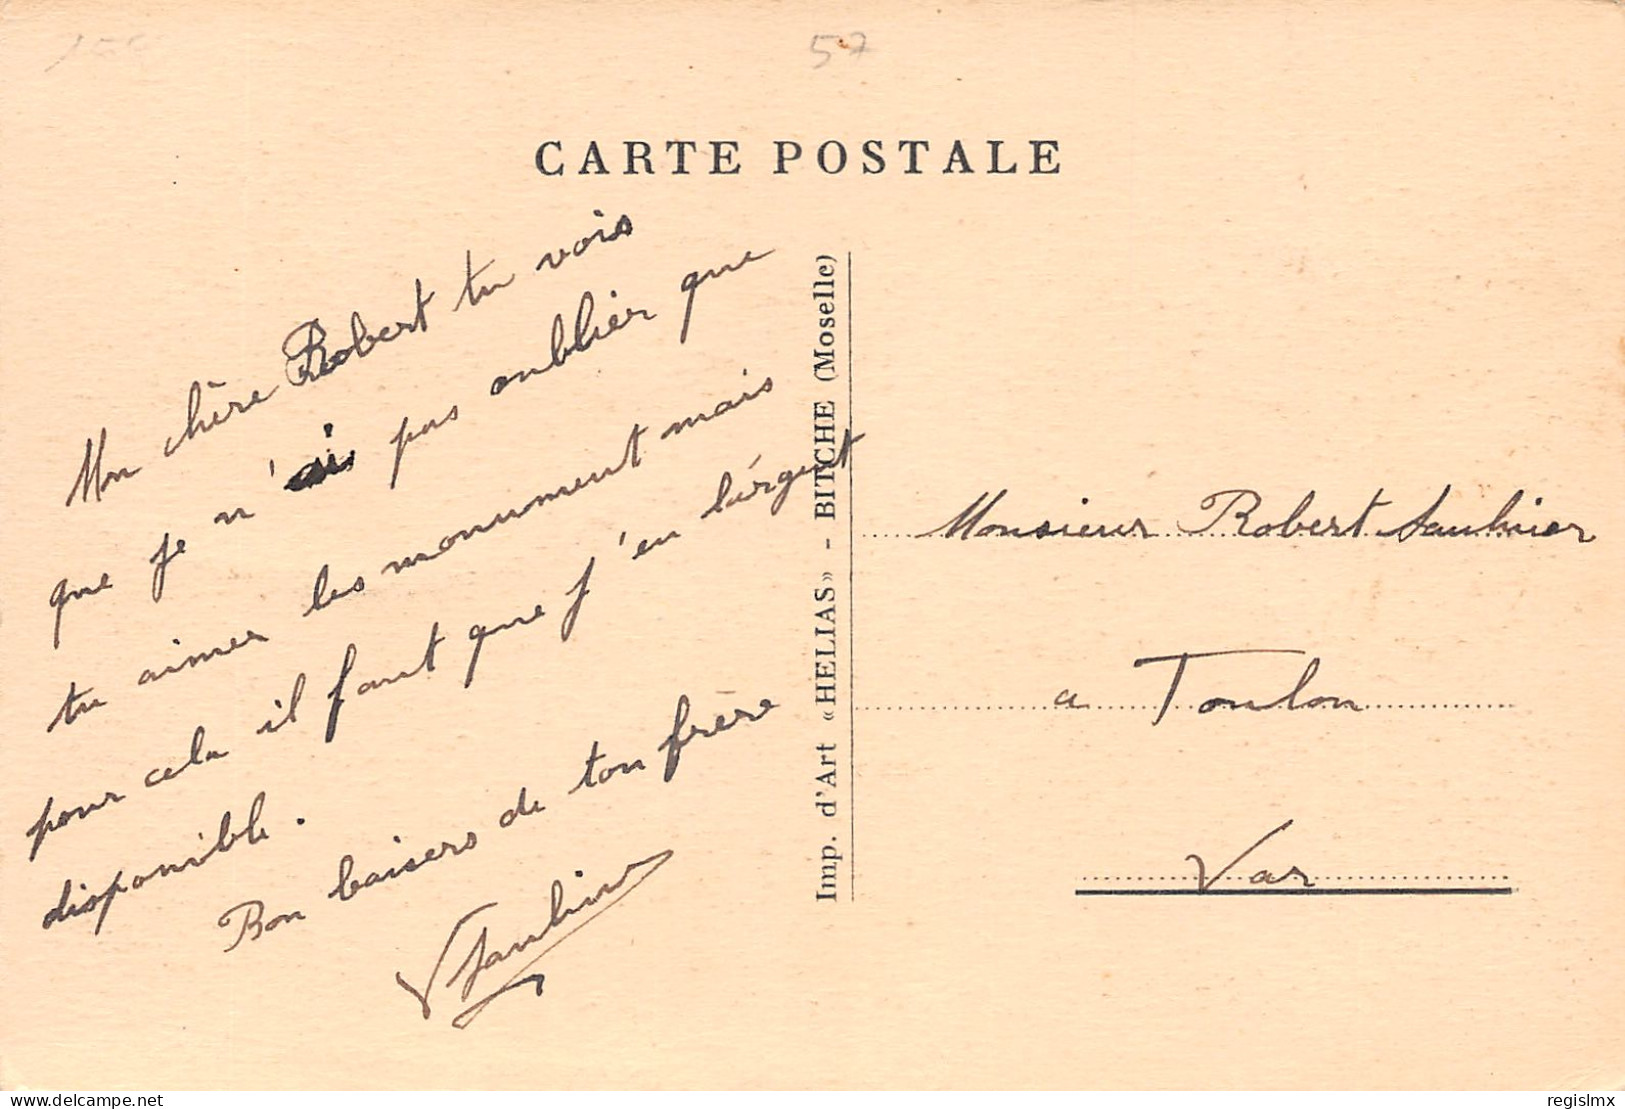 57
CARTE POSTALE
Mn chère Robert tu vois
que je n'ais pas oublier que
tu aimer les monument mais
pour cela il faut que j'en l'argent
disponible.
Bon baisers de ton frère
Imp. d'Art «HELIAS» - BITCHE (Moselle)
Monsieur Robert Saulnier
a Toulon
Var
delcampe.net
regislmx